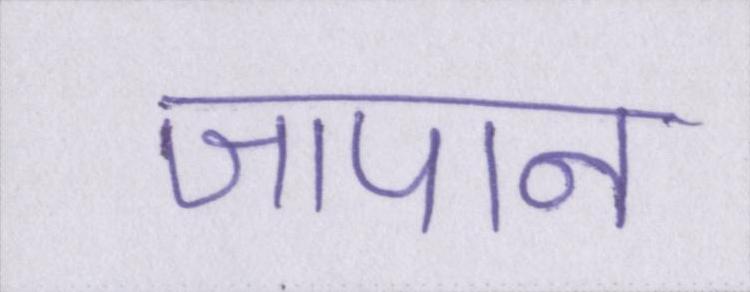 जापान